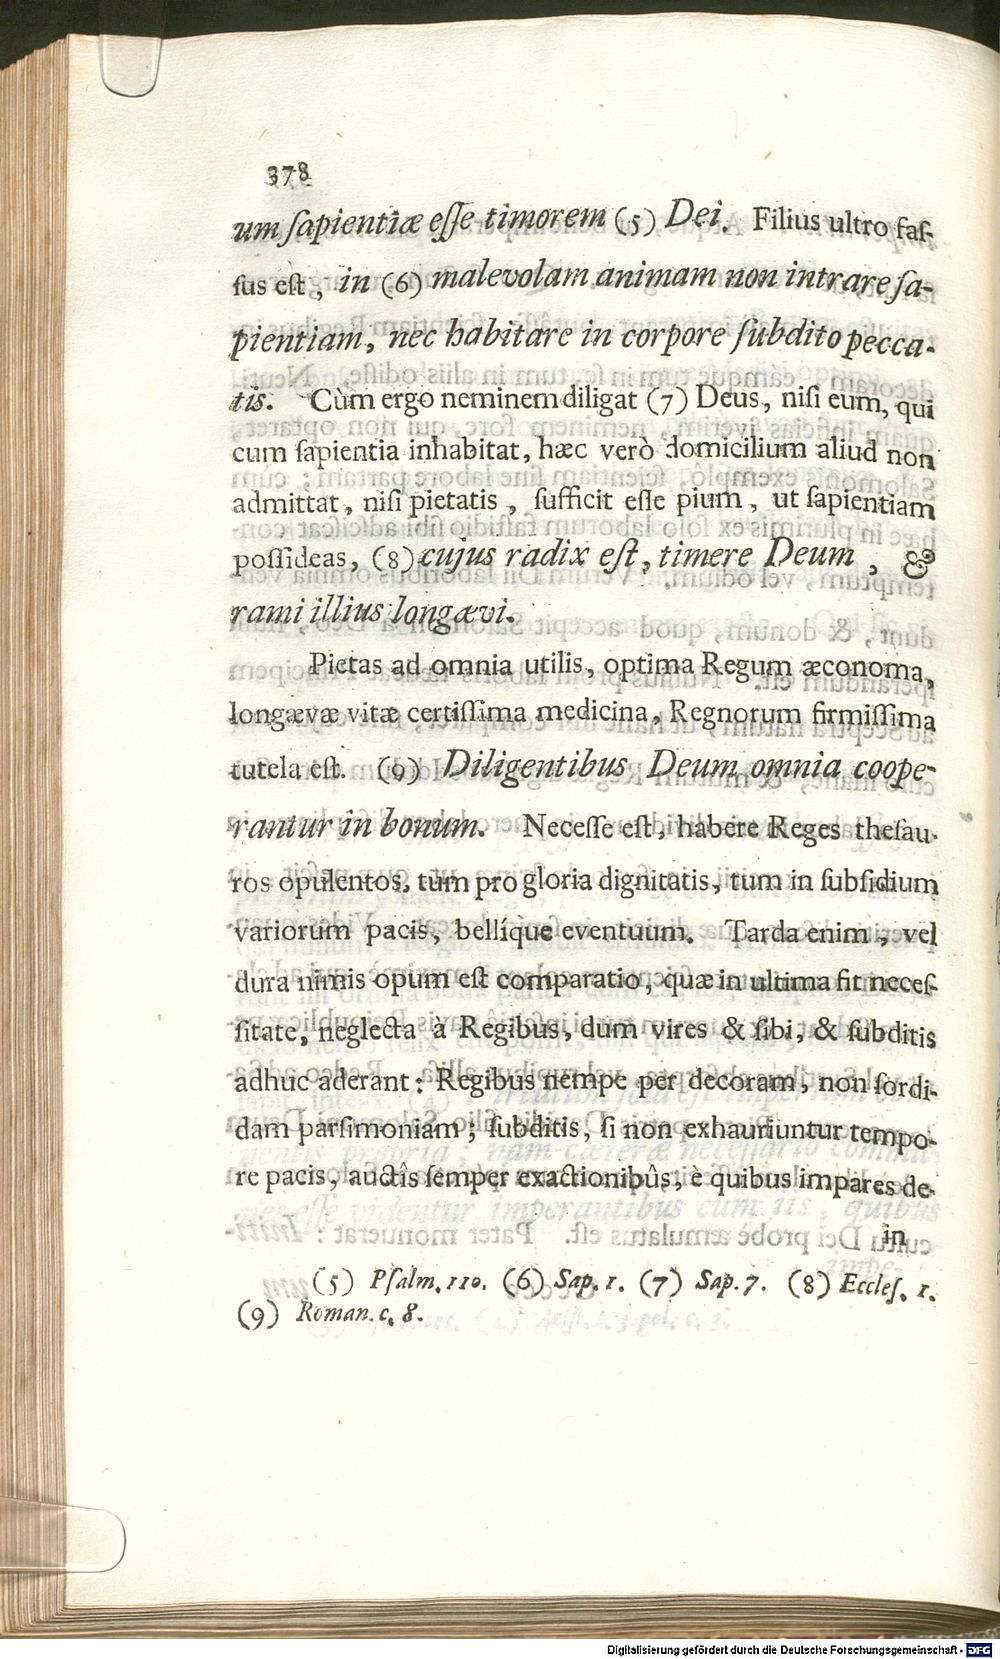 378
um ſapientiæ eſſe timorem (5) Dei. Filius ultro faſ-
ſus eſt, in (6) malevolam animam non intrare ſa-
pientiam, nec habitare in corpore ſubdito pecca-
tis. Cùm ergo neminem diligat (7) Deus, niſi eum, qui
cum ſapientia inhabitat, hæc verò domicilium aliud non
admittat, niſi pietatis, ſufficit eſſe pium, ut ſapientiam
poſſideas, (8) cujus radix eſt, timere Deum, &
rami illius longævi.
Pietas ad omnia utilis, optima Regum æconoma,
longævæ vitæ certiſſima medicina, Regnorum firmiſſima
tutela eſt. (9) Diligentibus Deum omnia coope-
rantur in bonum. Neceſſe eſt, habere Reges theſau-
ros opulentos, tùm pro gloria dignitatis, tum in ſubſidium
variorum pacis, bellíque eventuum. Tarda enim, vel
dura nimis opum eſt comparatio, quæ in ultima fit neceſ-
ſitate, neglecta à Regibus, dum vires & ſibi, & ſubditis
adhuc aderant: Regibus nempe per decoram, non ſordi-
dam parſimoniam; ſubditis, ſi non exhauriuntur tempo-
re pacis, auctîs ſemper exactionibûs, è quibus impares de-
in
(5) Pſalm. 110. (6) Sap. 1. (7) Sap. 7. (8) Eccleſ. 1.
(9) Roman. c. 8.
Digitalisierung gefördert durch die Deutsche Forschungsgemeinschaft - DFG